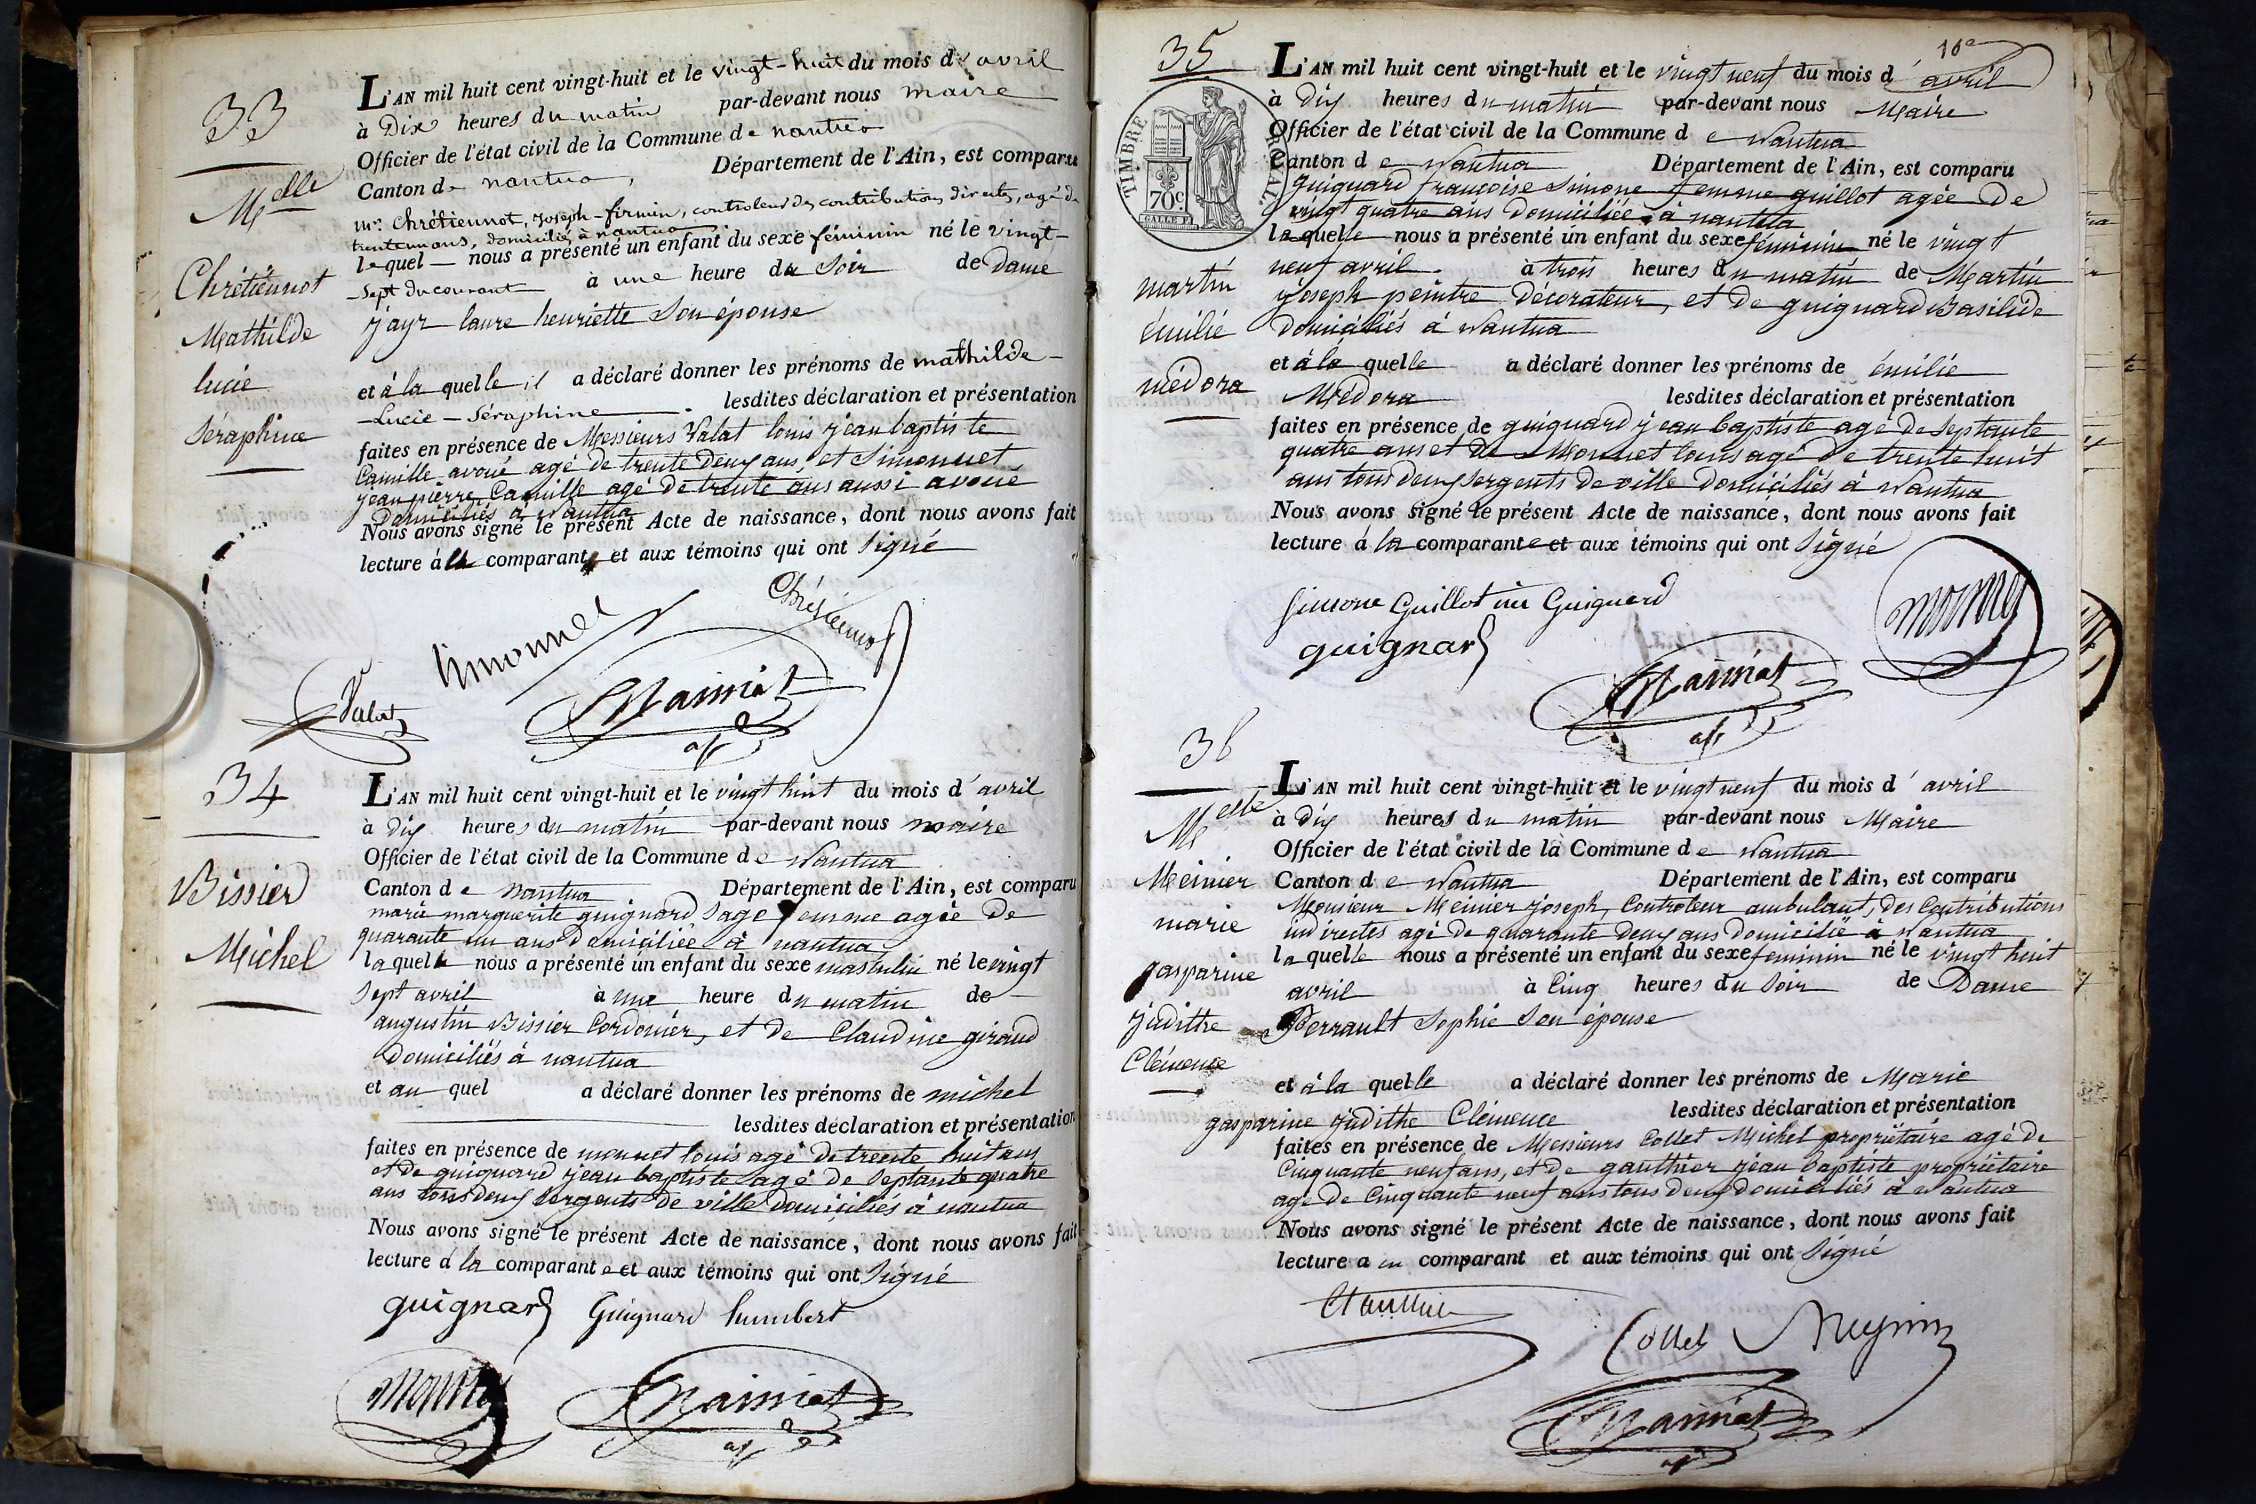 33
Melle
Chrétiennot
Mathilde
lucie
Séraphine
L'AN mil huit cent vingt-huit et le vingt-huit du mois d'avril
à Dix heures du matin par-devant nous maire
Officier de l'état civil de la Commune de nantua
Canton de nantua, Département de l'Ain, est comparu
mr. Chrétiennot, Joseph-firmin, controleur des contributions directes, agé de
trenteneuf ans, domicilié à nantua
lequel nous a présenté un enfant du sexe féminin né le vingt-
-sept du courant à une heure du Soir de Dame
jayr laure henriette Son épouse
et à la quelle il a déclaré donner les prénoms de mathilde-
-Lucie-Séraphine. lesdites déclaration et présentation
faites en présence de Messieurs Valat louis jean baptiste
Camille avoué agé de trente Deux ans, et Simonnet
jean pierre Camille agé de trente ans aussi avoué
Domiciliés à Nantua
Nous avons signé le présent Acte de naissance, dont nous avons fait
lecture à comparant et aux témoins qui ont Signé
Simonnet
Chrétiennot
Valat
34
Bissier
Michel
L'AN mil huit cent vingt-huit et le vingt huit du mois d'avril
à dix heures du matin par-devant nous maire
Officier de l'état civil de la Commune de Nantua
Canton de nantua Département de l'Ain, est comparu
marie marguerite guignard Sage femme agée De
quarante un ans Domiciliée à nantua
laquelle nous a présenté un enfant du sexe masculin né le vingt
Sept avril à une heure du matin de
augustin Bissier Cordonier, et de Claudine giraud
Domiciliés à nantua
et au quel a déclaré donner les prénoms de michel
lesdites déclaration et présentation
faites en présence de monnet louis agé de trente huit ans
et de guignard jean baptiste agé de Septante quatre
ans tous deux Sergents de ville Domiciliés à nantua
Nous avons signé le présent Acte de naissance, dont nous avons fait
lecture à la comparante et aux témoins qui ont Signé
guignard Guignard humbert
monnet
35
martin
émilie
médora
TIMBRE ROYAL
70c
L'AN mil huit cent vingt-huit et le vingt neuf du mois d'avril
à Dix heures du matin par-devant nous Maire
Officier de l'état civil de la Commune de Nantua
Canton de Nantua Département de l'Ain, est comparu
guignard françoise Simone femme guillot agée De
vingt quatre ans Domiciliée à nantua
laquelle nous a présenté un enfant du sexe féminin né le vingt
neuf avril. à trois heures du matin de Martin
joseph peintre Décorateur, et De guignard Basilide
Domiciliés à Nantua
et à la quelle a déclaré donner les prénoms de émilie
Médora lesdites déclaration et présentation
faites en présence de guignard jean baptiste agé de Septante
quatre ans et De Monnet louis agé De trente huit
ans tous deux Sergents De ville Domiciliés à Nantua
Nous avons signé le présent Acte de naissance, dont nous avons fait
lecture à la comparante et aux témoins qui ont Signé
Simone Guillot née Guignard
guignard
monnet
36
Melle
Meinier
marie
gasparine
judithe
Clémence
L'AN mil huit cent vingt-huit et le vingt neuf du mois d'avril
à dix heures du matin par-devant nous Maire
Officier de l'état civil de la Commune de Nantua
Canton de Nantua Département de l'Ain, est comparu
Monsieur Meinier joseph, Controleur ambulant, Des Contributions
indirectes agé De quarante Deux ans Domicilié à Nantua
laquelle nous a présenté un enfant du sexe feminin né le vingt huit
avril à Cinq heures du Soir de Dame
Perrault Sophie Son épouse
et à la quelle a déclaré donner les prénoms de Marie
gasparine judithe Clémence lesdites déclaration et présentation
faites en présence de Messieurs Collet Michel propriétaire agé De
Cinquante neuf ans, et De gauthier jean baptiste propriétaire
agé De Cinquante neuf ans tous Deux domiciliés à Nantua
Nous avons signé le présent Acte de naissance, dont nous avons fait
lecture a au comparant et aux témoins qui ont Signé
Collet